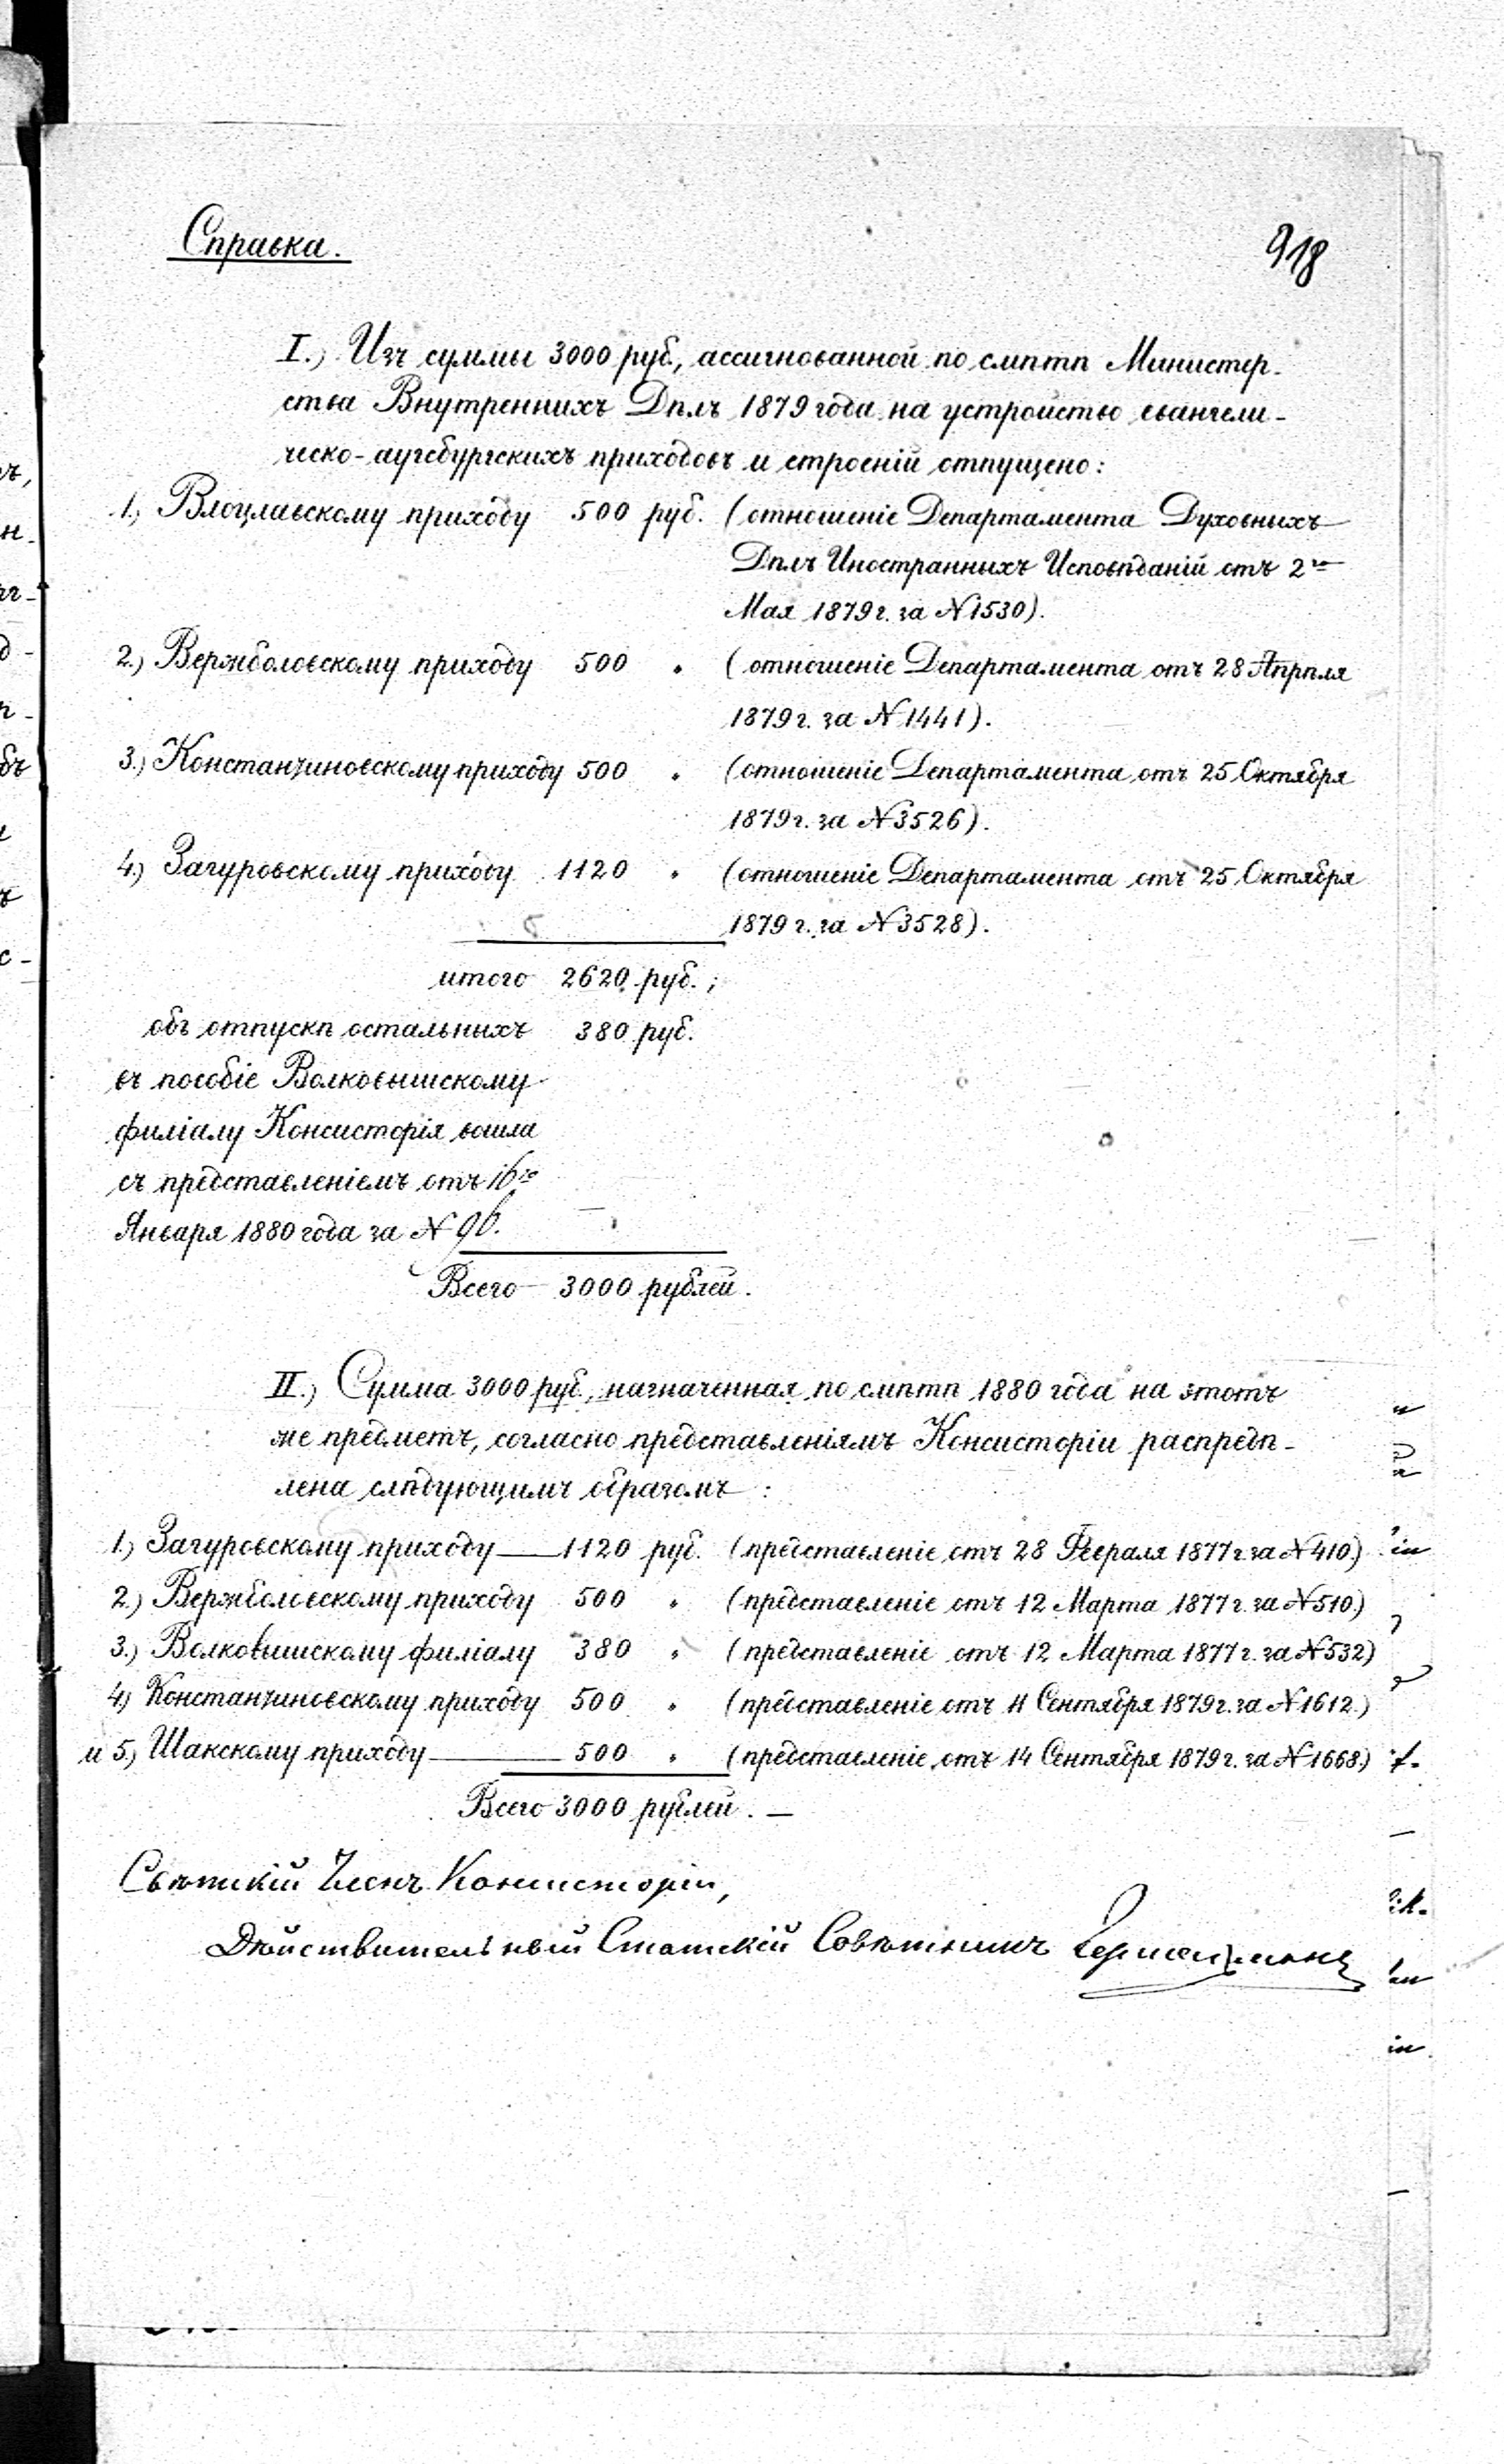 Справка.
918
I.) Изъ суммы 3000 руб., ассигнованной по смѣтѣ Министер-
ства Внутреннихъ Дѣлъ 1879 года на устройство евангели-
ческо-аугсбургскихъ приходовъ и строеній отпущено:
1.) Влоцлавскому приходу 500 руб. (отношеніе Департамента Духовныхъ
Дѣлъ Иностранныхъ Исповѣданій отъ 2го
Мая 1879 г. за N 1530).
2.) Вержболовскому приходу 500 " (отношеніе Департамента отъ 28 Апрѣля
1879 г. за N 1441).
3.) Константиновскому приходу 500 " (отношеніе Департамента отъ 25 Октября
1879 г. за N 3526).
4.) Загуровскому приходу 1120 " (отношеніе Департамента отъ 25 Октября
1879 г. за N 3528).
итого 2620 руб.;
объ отпускѣ остальныхъ 380 руб.
въ пособіе Волковышскому
филіалу Консисторія вошла
съ представленіемъ отъ 16го
Января 1880 года за N 96.
Всего 3000 рублей.
II.) Сумма 3000 руб., назначенная по смѣтѣ 1880 года на этотъ
же предметъ, согласно представленіямъ Консисторіи распредѣ-
лена слѣдующимъ образомъ:
1.) Загуровскому приходу — 1120 руб. (представленіе отъ 28 Февраля 1877 г. за N 410)
2.) Вержболовскому приходу 500 " (представленіе отъ 12 Марта 1877 г. за N 510.)
3.) Волковышскому филіалу 380 " (представленіе отъ 12 Марта 1877 г. за N 532)
4) Константиновскому приходу 500 " (представленіе отъ 11 Сентября 1879 г. за N 1612.)
и 5.) Шакскому приходу — 500 " (представленіе отъ 14 Сентября 1879 г. за N 1668.)
Всего 3000 рублей. —
Свѣтскій Членъ Консисторіи,
Дѣйствительный Статскій Совѣтникъ